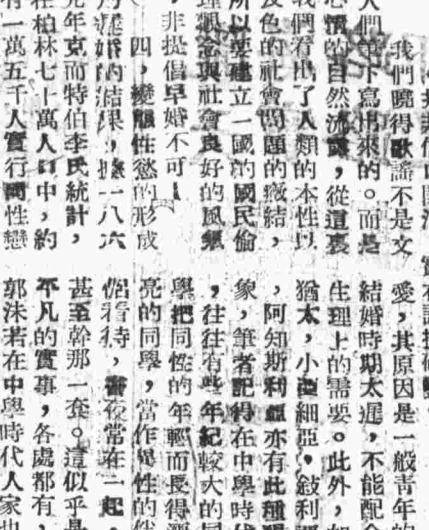 我們曉得歌謠不是文
人們筆下寫出來的。而是
心情的自然流露，從這裏
我們看出了人類的本性以
色的社會問題的癥結，
所以要建立一國的國民倫
理觀念與社會良好的風氣
，非提倡早婚不可！
四，變態性慾的形成
乃遲婚的結果，據一八六
年克而特伯李氏統計，
在柏林七十萬人口中，約
有一萬五千人實行同性戀
愛，其原因是一般青年的
結婚時期太遲，不能配
生理上的需要。此外，如
猶太，小亞細亞，敍利
，阿知斯利亞亦有此種現
象，筆者記得在中學時代
，往往有些年紀較大的同
學把同性的年輕而長得漂
亮的同學，當作異性的伴
侶看待，晝夜常在一起，
甚至幹那一套。這似乎是
不凡的實事，各處都有，
郭沫若在中學時代人家也